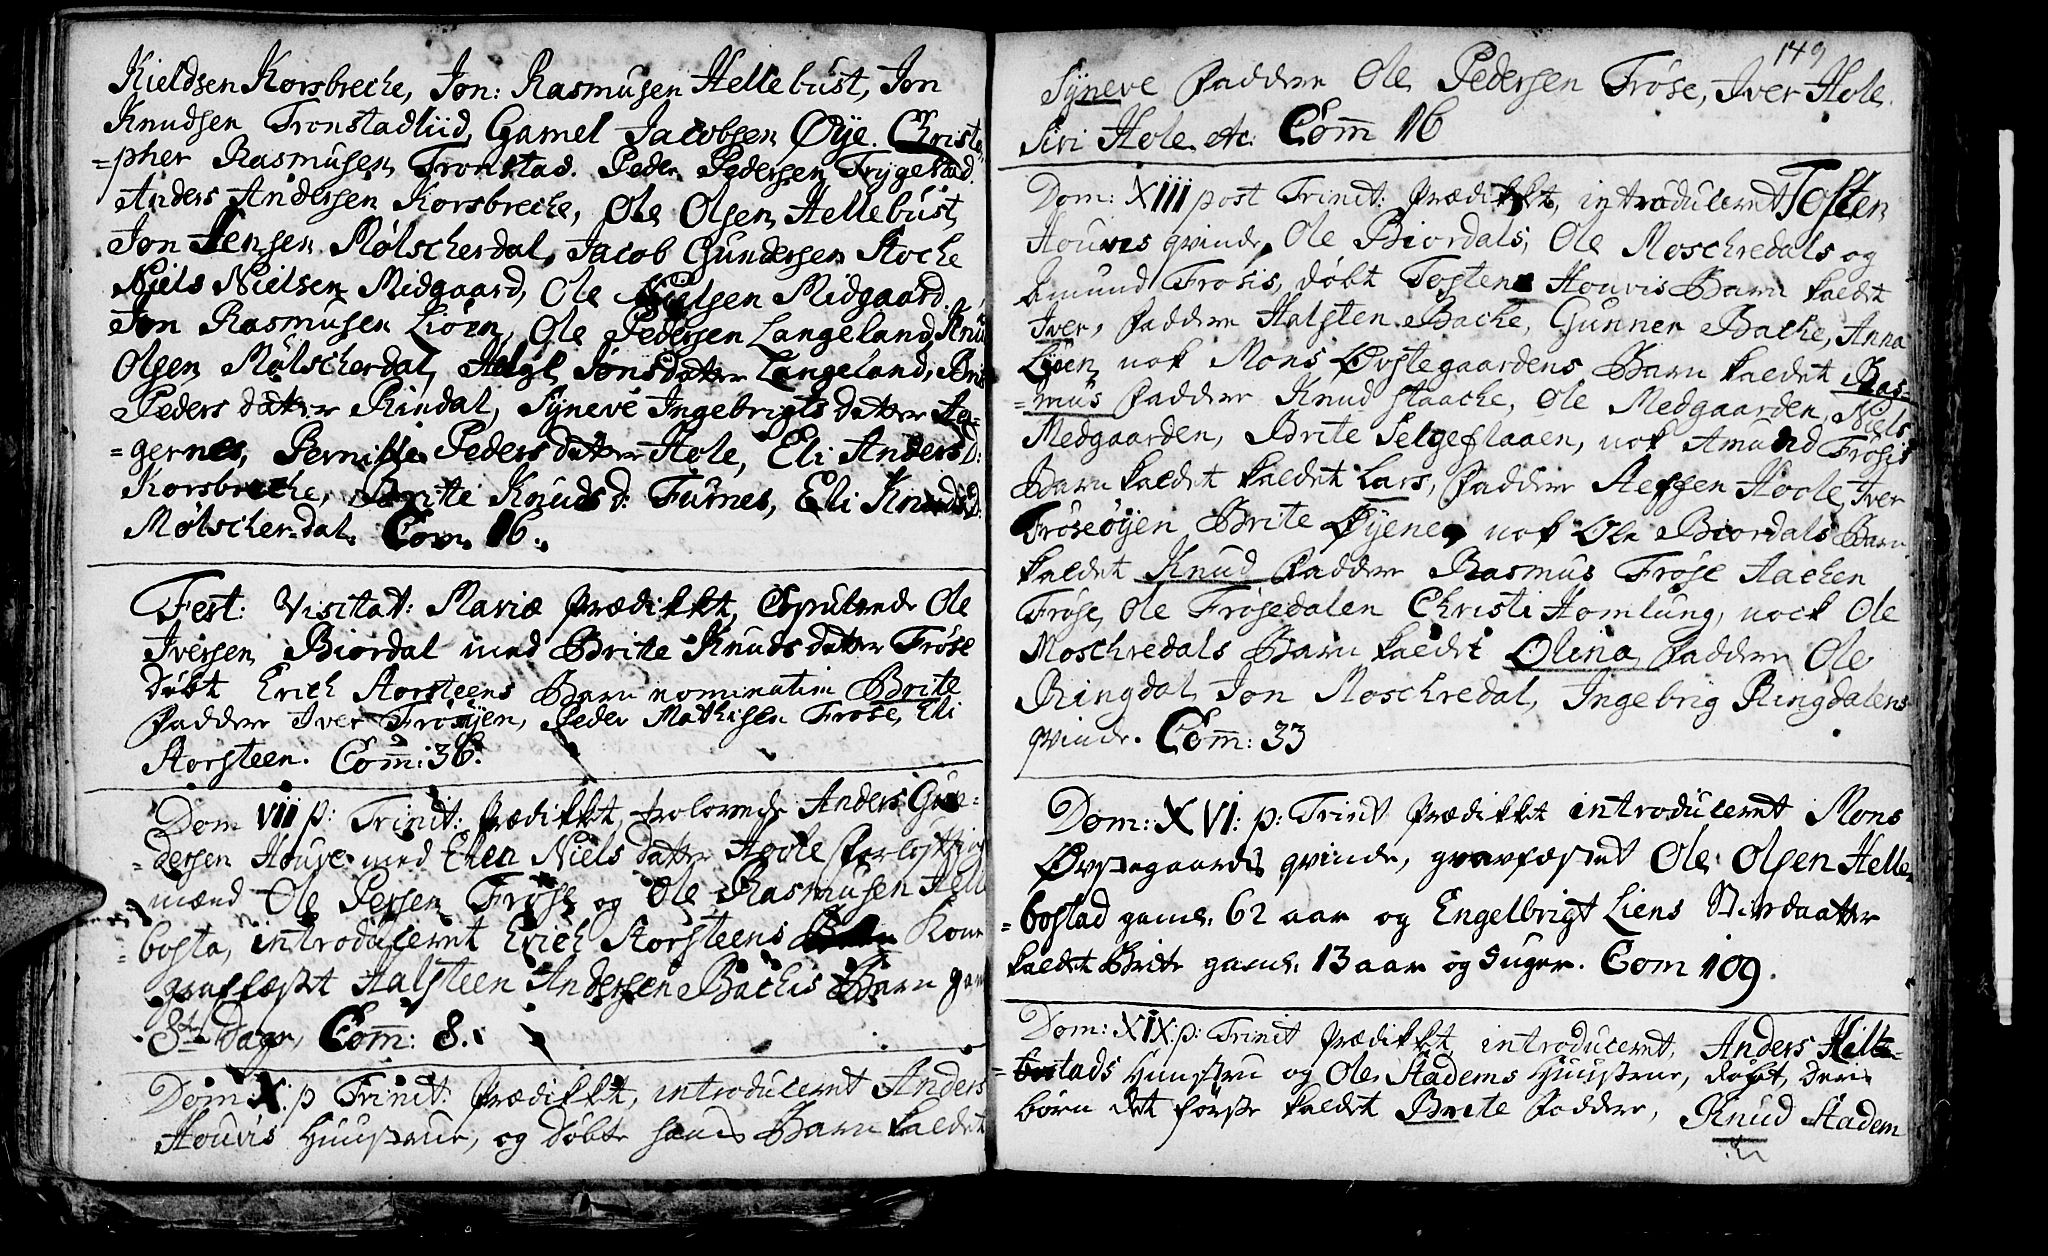 Kieldsen Korsbreche, Jon: Rasmusen Hellebust, Jon
Knudsen Tronstadliid, Gamel Jacobsen Øÿe. Christo-
=pher Rasmusen Tronstad. Peder Pedersen Trygestad.
Anders Andersen Korsbreche, Ole Olsen Hellebust,
Jon Jensen Mølscherdal, Jacob Gundersen Stoche
Niels Nielsen Midgaard, Ole Nielsen Midgaard.
Jon Rasmusen Liöen, Ole Pedersen Langeland, Knu
Olsen Mølscherdal, Helge Jonsdatter Langeland, Bri
Peders datter Rindal, Syneve Ingebrigts datter
=gernes, Pernille Peders datter Hole, Eli Anders D:
Korsbreche, Brite Knuds d: Furnes, Eli Knuds D:
Mølscherdal. Com 16.
Fest: Visitat: Mariæ Prædikket, Copulerede Ole
Iversen Biordal med Brite Knuds datter Frøse
døbt Erich Storsteens Barn nominatim Brite
Faddere Iver Frøsøjen, Peder Mathisen Frøse, Eli
Storsteen. Com̄: 36.
Dom VII p: Trinit: Prædikket, trolovede Anders Gun-
=dersen Houve med Ellen Niels datter Hoole forlofttings
mænd Ole Persen Frøse og Ole Rasmusen Helle
=bosta, introduceret Erich Storsteens Kone
graffæstet Halsteen Andersen Bachis Barn gam
8te Dage, Com̄: 8.
Dom X: p Trinit: Prædikket, introduceret Anders
Houvis Huustrue, og døbte hans Barn kaldet
149
Syneve Faddere Ole Pedersen Frøse, Iver Hole.
Siri Hole. etc. Com̄ 16
Dom: XIII post Trinit: Prædikket, introduceret Tosten
Houves qvinde, Ole Biordals, Ole Moschredals og
Amund Frøsis, døbt Tostens Houvis Barn kaldet
Iver, Faddere Halsten Bache, Gunner Bache, Anna
Liöen, nok Mons Øvstegaardens Barn kaldet Ras-
=mus Faddere Knud Staache, Ole Medgaarden, Niels
Medgaarden, Brite Selgeflaaen, nok Amund Frøsis
Barn kaldet kaldet Lars, Faddere Steffen Hoole, Iver
Frøseøyen Brite Øyene, nok Ole Biordals Barn
kaldet Knud Faddere Rasmus Frøse Hachen
Frøse, Ole Frøsedalen Christi Homlung, nock Ole
Moschredals Barn kaldet Olina, Faddere Ole
Ringdal, Jon Moschredal, Ingebrig Ringdalens
qvinde. Com̄: 33
Dom: XVI: p: Trinit Prædikket introduceret Mons
Øvstegaards qvinde, gravfæstet Ole Olsen Helle-
=bostad gaml. 62 aar og Engelbrigt Liens Stivdaatter
kaldet Brite gaml. 13 aar og 5 uger. Com 109.
Dom: XIX: p: Trinit Prædikket, introduceret, Anders Helle-
=bostads Huustru og Ole Stadems Huustrue, døbt deris
børn det første kaldet Brite Faddere, Knud Stadem